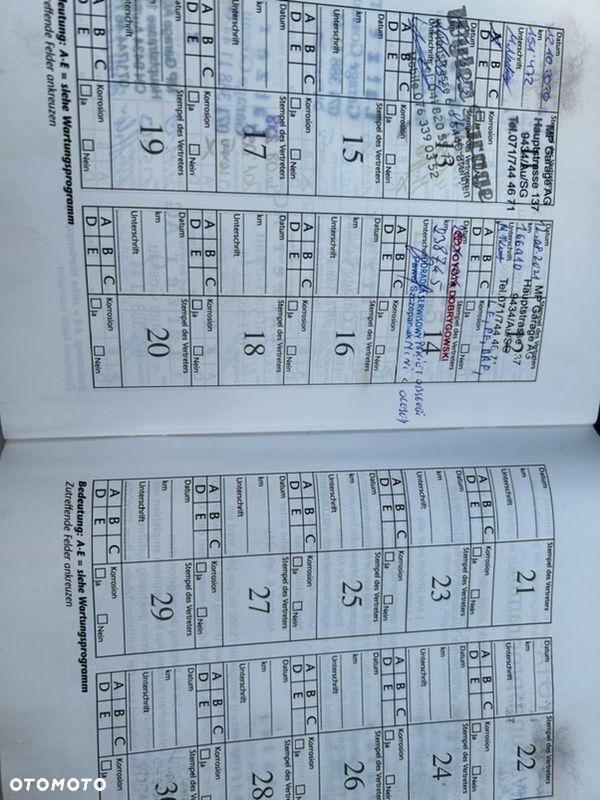 Datum
12.10.2020
km
151'472
Unterschrift
MP Garage AG
Hauptstrasse 137
9434/Au/SG
Tel.071/744 46 71
A B C
D E
Korrosion
Ja
Datum
166010
km
Unterschrift
Stempel des Vertreters
MP Garage AG
Hauptstrasse 137
9434/Au/SG
Tel.071/744 46 71
A B C
D E
Korrosion
Datum
km
Unterschrift
13
Mobile 076 339 03 52
A B C
D E
Korrosion
Ja
Nein
Datum
238745
TOYOTA DOBRYGOWSKI
DORADCA SERWISOWY
Paweł Szczepaniak
14
A B C
D E
Korrosion
Ja
Nein
Datum
km
Unterschrift
Stempel des Vertreters
15
A B C
D E
Korrosion
Ja
Nein
Datum
km
Unterschrift
Stempel des Vertreters
16
A B C
D E
Korrosion
Ja
Nein
Datum
km
Unterschrift
Stempel des Vertreters
17
A B C
D E
Korrosion
Ja
Nein
Datum
km
Unterschrift
Stempel des Vertreters
18
A B C
D E
Korrosion
Ja
Nein
Datum
km
Unterschrift
Stempel des Vertreters
19
A B C
D E
Korrosion
Ja
Nein
Datum
km
Unterschrift
Stempel des Vertreters
20
A B C
D E
Korrosion
Ja
Nein
Bedeutung: A-E = siehe Wartungsprogramm
Zutreffende Felder ankreuzen
Datum
km
Unterschrift
Stempel des Vertreters
21
A B C
D E
Korrosion
Ja
Nein
Datum
km
Unterschrift
Stempel des Vertreters
22
A B C
D E
Korrosion
Ja
Datum
km
Unterschrift
Stempel des Vertreters
23
A B C
D E
Korrosion
Ja
Nein
Datum
km
Unterschrift
Stempel des Vertreters
24
A B C
D E
Korrosion
Ja
Datum
km
Unterschrift
Stempel des Vertreters
25
A B C
D E
Korrosion
Ja
Nein
Datum
km
Unterschrift
Stempel des Vertreters
26
A B C
D E
Korrosion
Ja
Datum
km
Unterschrift
Stempel des Vertreters
27
A B C
D E
Korrosion
Ja
Nein
Datum
km
Unterschrift
Stempel des Vertreters
28
A B C
D E
Korrosion
Ja
Datum
km
Unterschrift
Stempel des Vertreters
29
A B C
D E
Korrosion
Ja
Nein
Datum
km
Unterschrift
A B C
D E
Korrosion
Ja
Bedeutung: A-E = siehe Wartungsprogramm
Zutreffende Felder ankreuzen
OTOMOTO